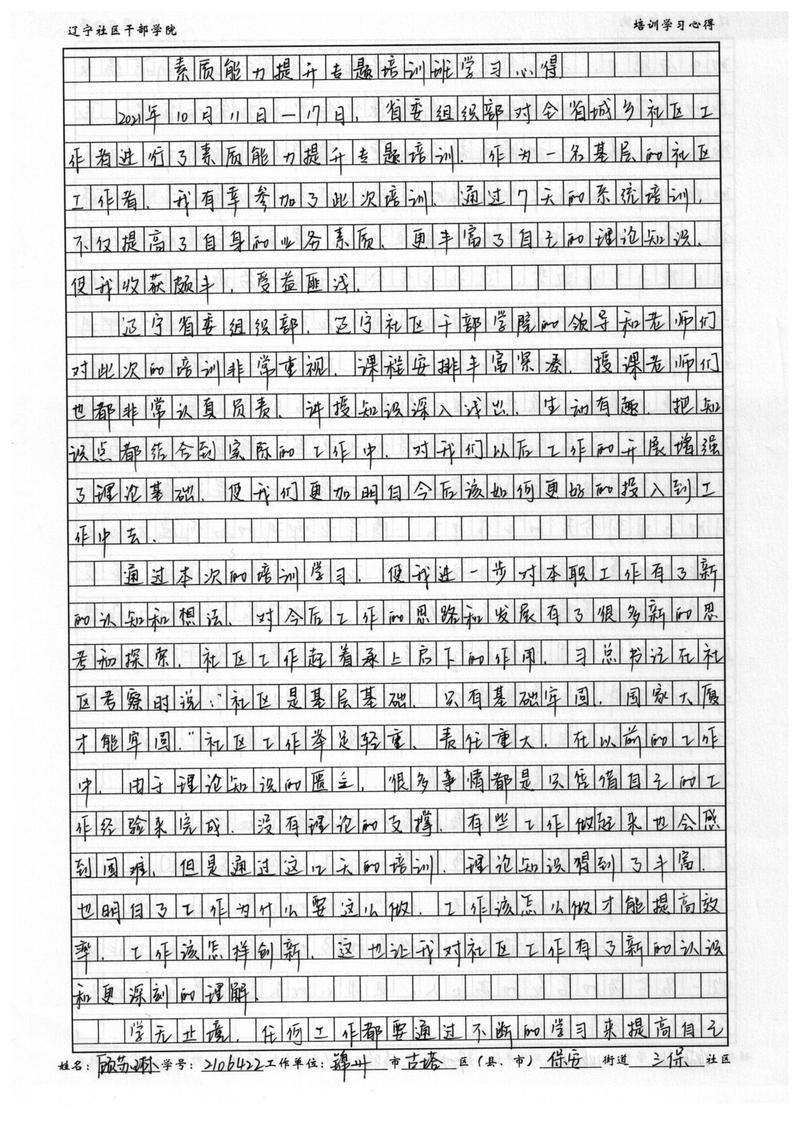 辽宁社区干部学院 培训学习心得
素质能力提升专题培训班学习心得
2021年10月11日—17日，省委组织部对全省城乡社区工
作者进行了素质能力提升专题培训，作为一名基层的社区
工作者，我有幸参加了此次培训，通过7天的系统培训，
不仅提高了自身的业务素质，更丰富了自己的理论知识，
使我收获颇丰，受益匪浅。
辽宁省委组织部，辽宁社区干部学院的领导和老师们
对此次的培训非常重视，课程安排丰富紧凑，授课老师们
也都非常认真负责，讲授知识深入浅出，生动有趣，把知
识点都结合到实际的工作中，对我们以后工作的开展增强
了理论基础，使我们更加明白今后该如何更好的投入到工
作中去。
通过本次的培训学习，使我进一步对本职工作有了新
的认知和想法，对今后工作的思路和发展有了很多新的思
考和探索，社区工作起着承上启下的作用，习总书记在社
区考察时说："社区是基层基础，只有基础牢固，国家大厦
才能牢固。"社区工作举足轻重，责任重大，在以前的工作
中，由于理论知识的匮乏，很多事情都是只凭借自己的工
作经验来完成，没有理论的支撑，有些工作做起来也会感
到困难，但是通过这几天的培训，理论知识得到了丰富，
也明白了工作为什么要这么做，工作该怎么做才能提高效
率，工作该怎样创新，这也让我对社区工作有了新的认识
和更深刻的理解。
学无止境，任何工作都要通过不断的学习来提高自己
姓名：顾 学号：2106422 工作单位：锦州 市 古塔 区（县、市） 保安 街道 三保 社区